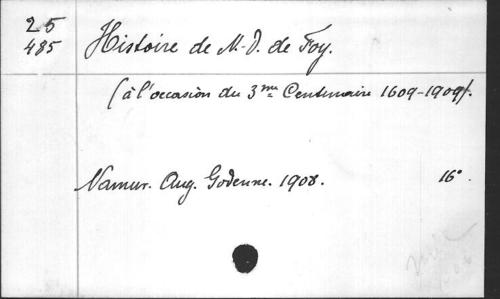 25
485
Histoire de N.-D. de Foy.
(à l'occasion du 3me Centenaire 1609-1909).
Namur. Aug. Godenne. 1908. 16°